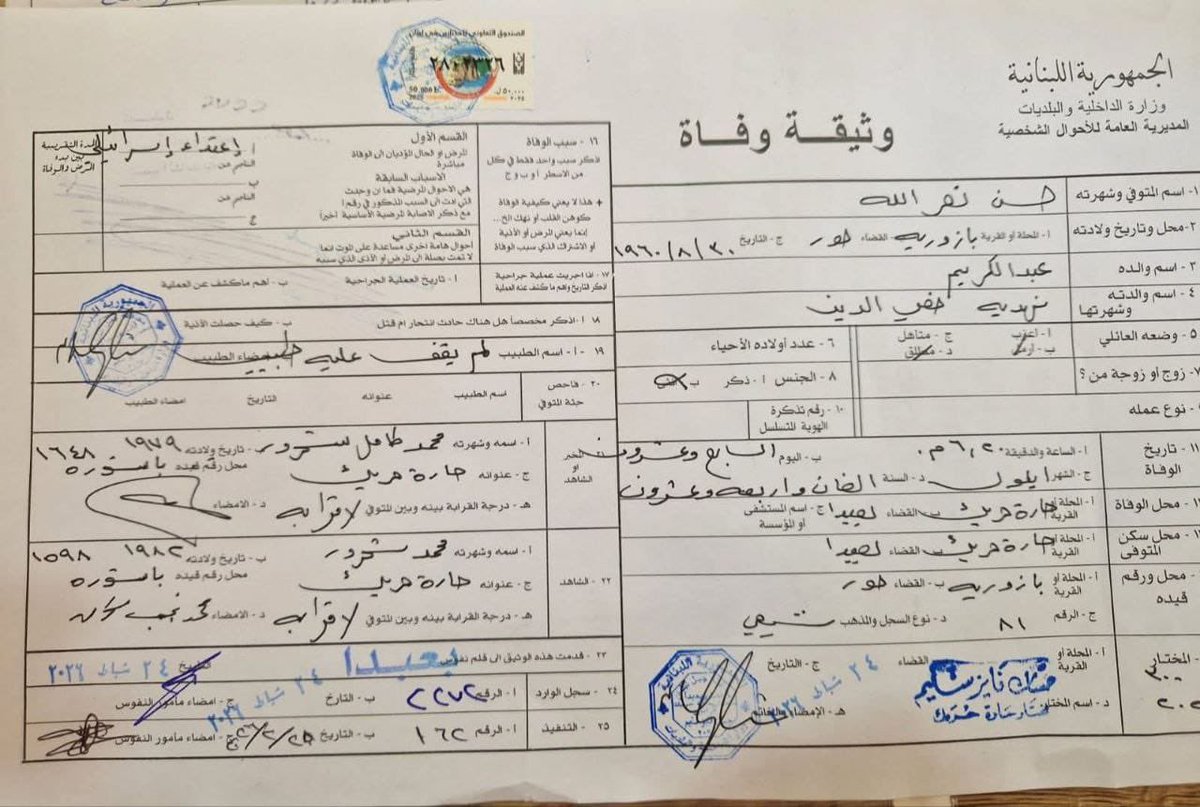 الجمهورية اللبنانية
وزارة الداخلية والبلديات
المديرية العامة للأحوال الشخصية
وثيقة وفاة
١- اسم المتوفي وشهرته حسن نصر الله
٢- محل وتاريخ ولادته أ- المحلة او القرية بازوريه القضاء صور ج- التاريخ ١٩٦٠/٨/٣٠
٣- اسم والده عبد الكريم
٤- اسم والدته وشهرتها نهديه صفي الدين
٥- وضعه العائلي أ- اعزب ب- أرمل ج- متأهل د- مطلق
٦- عدد أولاده الأحياء
٧- زوج أو زوجة من ؟
٨- الجنس أ- ذكر ب-
نوع عمله
١٠- رقم تذكرة الهوية المتسلسل
١١- تاريخ الوفاة أ- الساعة والدقيقة ٦,٢٠ م. ب- اليوم السابع وعشرون
ج- الشهر ايلول د- السنة الفان واربعه وعشرون
محل الوفاة أ- المحلة او القرية حارة حريك ب- القضاء بعبدا ج- اسم المستشفى او المؤسسة
محل سكن المتوفى أ- المحلة او القرية حارة حريك القضاء بعبدا
محل ورقم قيده أ- المحلة او القرية بازوريه ب- القضاء صور
ج- الرقم ٨١ د- نوع السجل والمذهب شيعي
المختار أ- المحلة او القرية القضاء ج- التاريخ ٢٤ شباط ٢٠٢٦
د- اسم المختار هـ- الإمضاء والخاتم
مختار حارة حريك
الصندوق التعاوني للمختارين في لبنان
٢٨٠٢٣٢٦
50,000
٥٠,٠٠٠ ل.ل
١٦- سبب الوفاة
اذكر سبب واحد فقط في كل من الاسطر أ و ب و ج
+ هذا لا يعني كيفية الوفاة كوهن القلب او نهك الخ...
إنما يعني المرض أو الأذية او الاشتراك الذي سبب الوفاة
القسم الأول
المرض او الحال المؤديان الى الوفاة مباشرة
أ إعتداء إسرائيلي
الناتج من
الأسباب السابقة
هي الاحوال المرضية فما ان وجدت التي ادت الى السبب المذكور في رقم أ مع ذكر الاصابة المرضية الأساسية أخيرا
ب
الناتج من
ج
المدة التقريبية بين بدء المرض والوفاة
القسم الثاني
أحوال هامة اخرى مساعدة على الموت انما لا تمت بصلة الى المرض أو الأذى الذي سببه
١٧- اذا اجريت عملية جراحية اذكر التاريخ واهم ما كشف عنه العملية أ- تاريخ العملية الجراحية ب- اهم ماكشف عن العملية
١٨ أ- اذكر مخصصا هل هناك حادث انتحار ام قتل ب- كيف حصلت الأذية
١٩- أ- اسم الطبيب لم يقف عليه طبيب امضاء الطبيب
٢٠- فاحص جثة المتوفي اسم الطبيب عنوانه التاريخ امضاء الطبيب
المخبر او الشاهد أ- اسمه وشهرته محمد كامل شحرور ب- تاريخ ولادته ١٩٧٩ ١٦٤٨
ج- عنوانه حارة حريك محل رقم قيده باستوره
هـ- درجة القرابة بينه وبين المتوفي لا قرابه د- الامضاء
٢٢- الشاهد أ- اسمه وشهرته محمد شحرور ب- تاريخ ولادته ١٩٨٢ ١٥٩٨
ج- عنوانه حارة حريك محل رقم قيده باستوره
هـ- درجة القرابة بينه وبين المتوفي لا قرابه د- الامضاء
٢٣- قدمت هذه الوثيق الى قلم نفوس بعبدا تاريخ ٢٤ شباط ٢٠٢٦
٢٤- سجل الوارد أ- الرقم ٢٢٧٢ ب- التارخ ٢٤ شباط ٢٠٢٦ ج- امضاء مأمور النفوس
٢٥- التنفيذ أ- الرقم ١٦٢ ب- التاريخ ج- امضاء مأمور النفوس